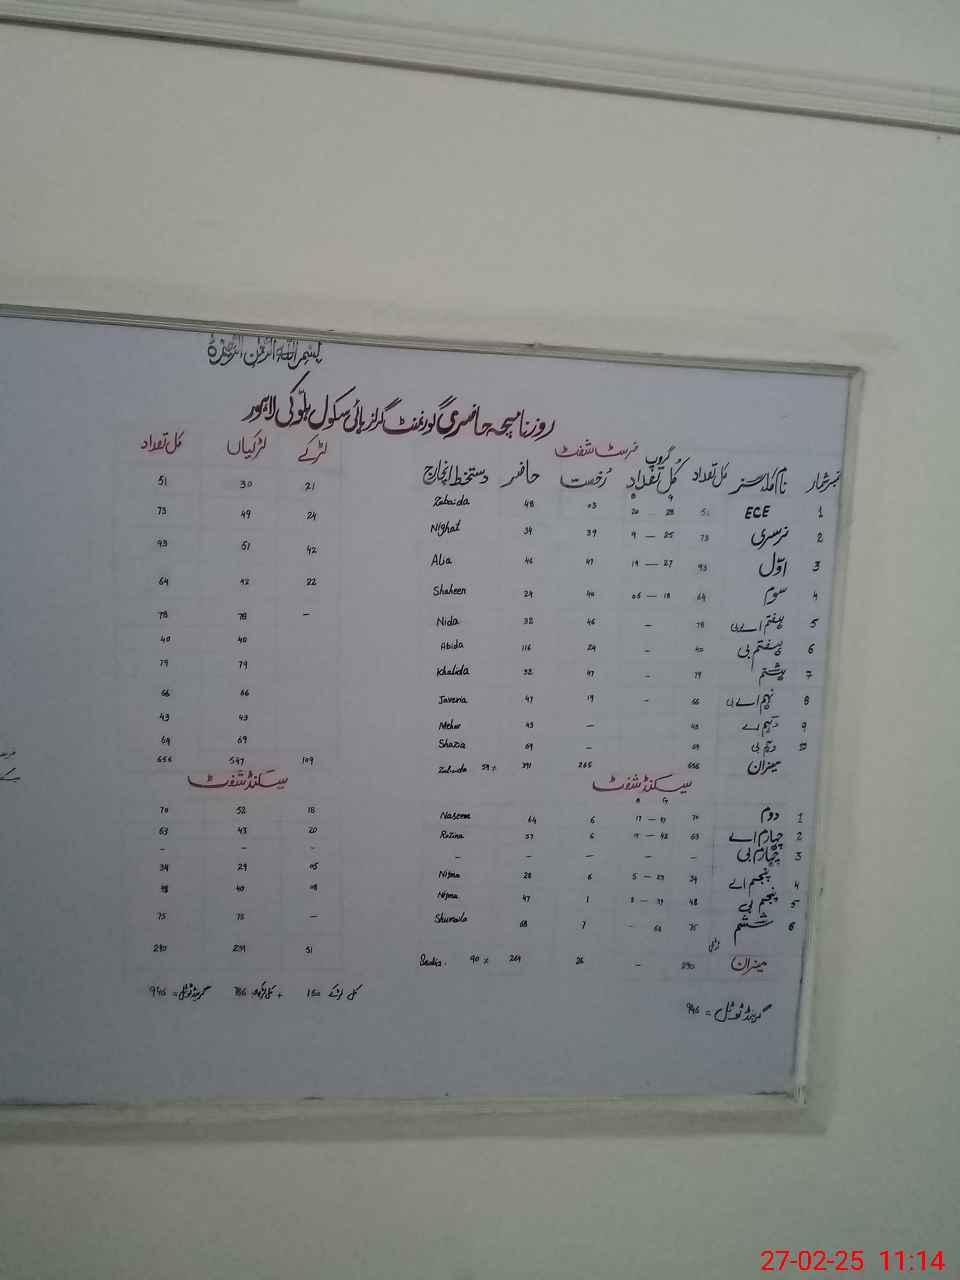 بسم اللہ الرحمٰن الرحیم
روزنامچہ حاضری گورنمنٹ گرلز ہائی سکول ہلوکی لاہور
فرسٹ شفٹ
نمبر شمار نام کلاسز کل تعداد گروپ کُل تعداد رُخصت حاضر دستخط انچارج لڑکے لڑکیاں کل تعداد
B G
1 ECE 51 20 28 03 48 Zubaida 21 30 51
2 نرسری 73 9 — 25 39 34 Nighat 24 49 73
3 اوّل 93 19 — 27 47 46 Alia 42 51 93
4 سوم 64 06 — 18 40 24 Shaheen 22 42 64
5 ہفتم اے بی 78 – 46 32 Nida – 78 78
6 ہفتم بی 40 – 24 116 Abida 40 40
7 ہشتم 79 – 47 32 Khalida 79 79
8 نہم اے بی 66 – 19 47 Javeria 66 66
9 دہم اے 43 – 43 Meher 43 43
10 دہم بی 69 – 69 Shazia 69 69
میزان 656 265 391 59% Zubaida 109 547 656
سیکنڈ شفٹ سیکنڈ شفٹ
B G
1 دوم 70 17 — 47 6 64 Naseem 18 52 70
2 چہارم اے 63 15 — 42 6 57 Rozina 20 43 63
3 چہارم بی – – – – – – – –
4 پنجم اے 34 5 — 23 6 28 Nigma 05 29 34
5 پنجم بی 48 8 — 39 1 47 Nigma 08 40 48
6 ششم 75 – 68 7 68 Shumaila – 75 75
میزان 290 – 26 264 90% Sadia. 51 239 290
گرینڈ ٹوٹل = 946
کل لڑکے 160 + کل لڑکیاں 786 گرینڈ ٹوٹل = 946
27-02-25 11:14